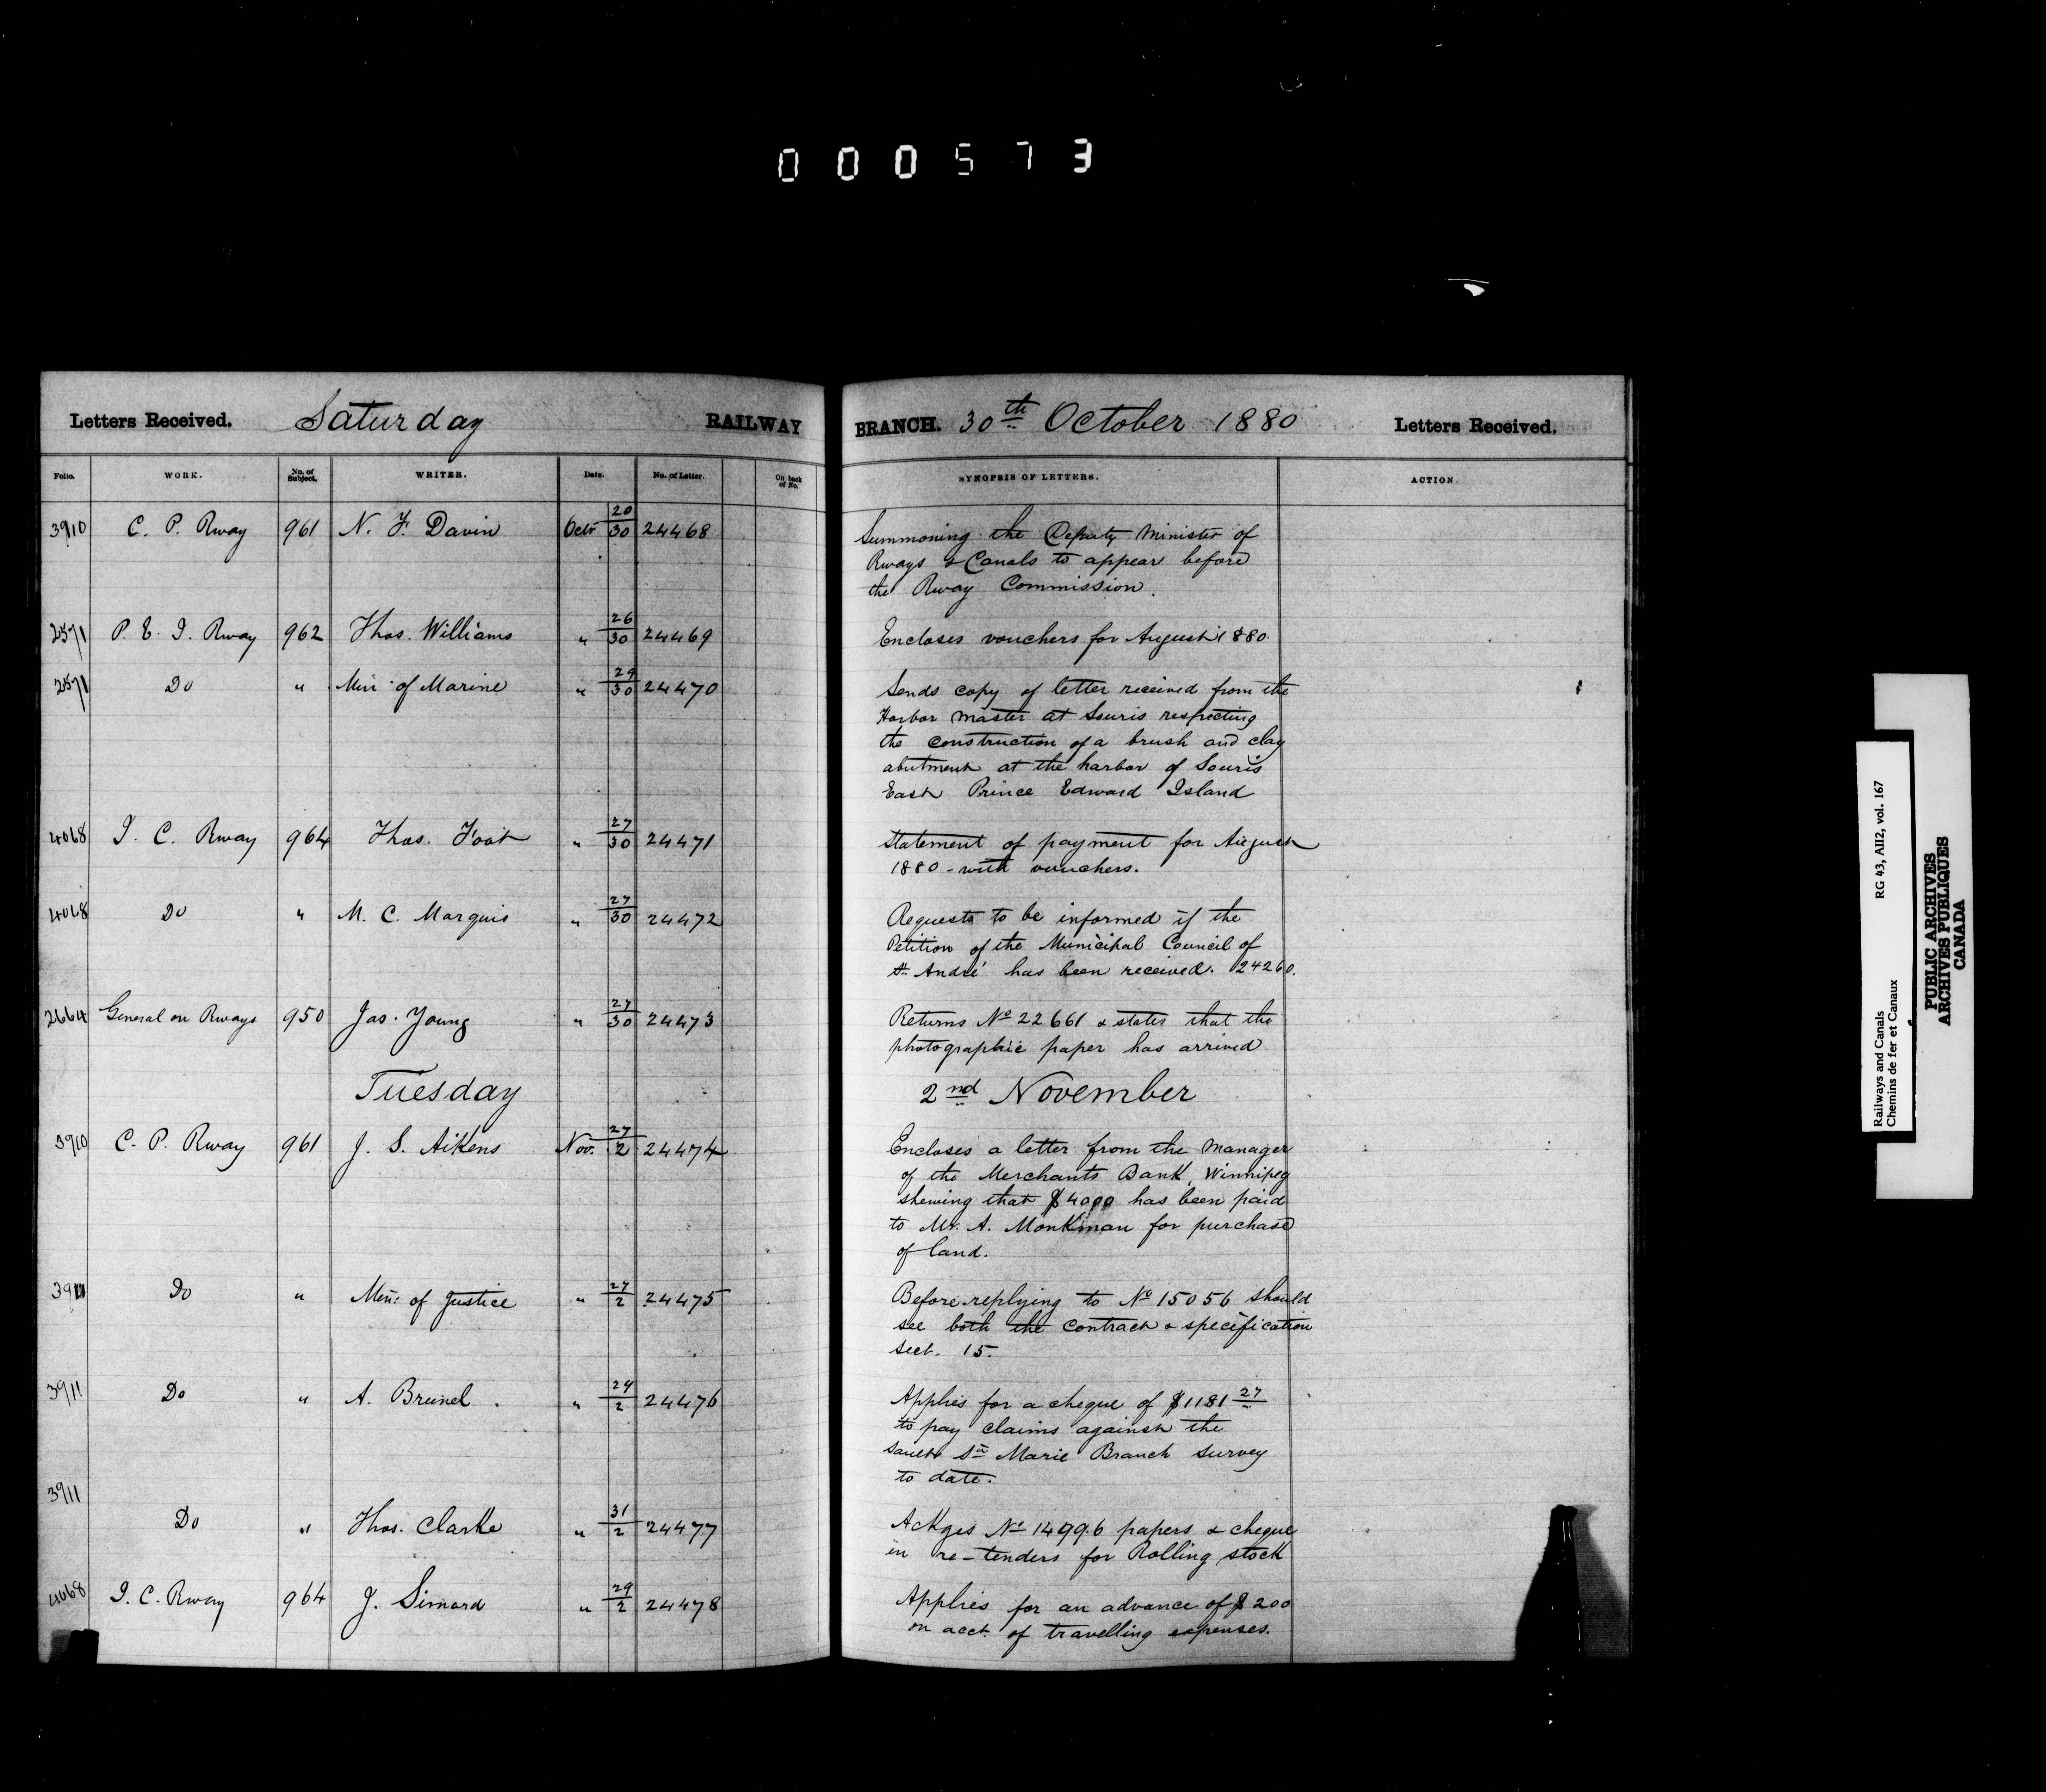 000573
Letters Received. Saturday RAILWAY BRANCH. 30th October 1880 Letters Received.
Folio. WORK. No. of Subject. WRITER. Date. No. of Letter. On back of No. SYNOPSIS OF LETTERS. ACTION.
3910 C. P. Rway 961 N. F. Davin Octr 20/30 24468 Summoning the Deputy Minister of
Rways & Canals to appear before
the Rway Commission.
2571 P. E. I. Rway 962 Thos. Williams " 26/30 24469 Encloses vouchers for August 1880.
2571 Do " Min. of Marine " 29/30 24470 Sends copy of letter received from the
Harbor Master at Souris respecting
the construction of a brush and clay
abutment at the harbor of Souris
East Prince Edward Island
4068 I. C. Rway 964 Thos. Foot " 27/30 24471 Statement of payment for August
1880 - with vouchers.
4068 Do " M. C. Marquis " 27/30 24472 Requests to be informed if the
Petition of the Municipal Council of
St. André has been received. 24260.
2664 General on Rways 950 Jas. Young " 27/30 24473 Returns No 22661 & states that the
photographic paper has arrived
Tuesday 2nd November
3910 C. P. Rway 961 J. S. Aikens Nov. 27/2 24474 Encloses a letter from the Manager
of the Merchants Bank, Winnipeg
shewing that $4000 has been paid
to Mr. A. Monkman for purchase
of land.
3911 Do " Min: of Justice " 27/2 24475 Before replying to No 15056 should
see both the contract & specification
sect. 15.
3911 Do " A. Brunel. " 29/2 24476 Applies for a cheque of $1181 27
to pay claims against the
Sault Ste Marie Branch survey
to date.
3911 Do " Thos. Clarke " 31/2 24477 Ackges No 14996 papers & cheque
in re-tenders for Rolling stock
4068 I. C. Rway 964 J. Simard " 29/2 24478 Applies for an advance of $200
on acct. of travelling expenses.
Railways and Canals RG 43, AII2, vol. 167
Chemins de fer et Canaux
PUBLIC ARCHIVES
ARCHIVES PUBLIQUES
CANADA